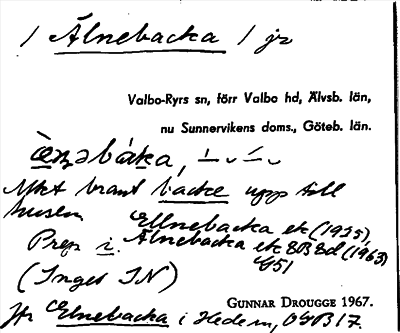 / Älnebacka / jr
Valbo-Ryrs sn, förr Valbo hd, Älvsb. län,
nu Sunnervikens doms., Göteb. län.
Mkt brant backe upp till
husen
Elnebacka ek (1935),
Prep i. Älnebacka ek 8B8d (1963)
G51
(Inget IN)
Jfr Elnebacka i Hedem, OGB 17.
GUNNAR DROUGGE 1967.